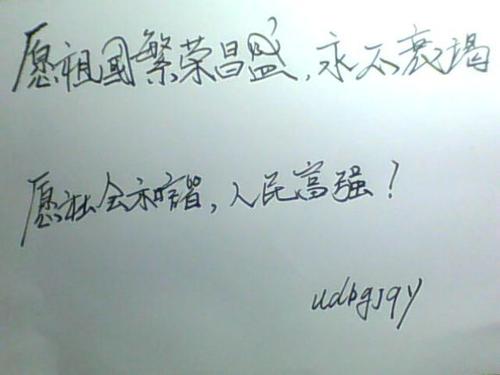 愿祖國繁荣昌盛，永不衰竭
愿社会和谐，人民富强！
udbgjqy